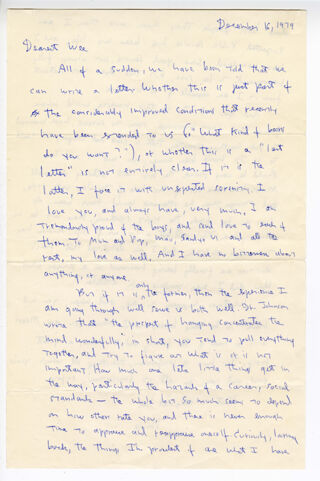 December 16, 1979
Dearest Wee
All of a sudden, we have been told that we
can write a letter. Whether this is just part of
the considerably improved conditions that recently
have been extended to us ("What kind of beer
do you want?"), or whether this is a "last
letter" is not entirely clear. If it is the
latter, I face it with unexpected serenity. I
love you, and always have, very much. I am
tremendously proud of the boys, and send love to each of
them. To Mum and Pop, and all the
rest, my love as well. And I have no bitterness about
anything, or anyone.
But if it is only the former, then the experience I
am going through will serve us both well. Dr. Johnson
wrote that "the prospect of hanging concentrates the
mind wonderfully", in short, you tend to pull everything
together, and try to figure out what is or is not
important. How much one lets little things get in
the way, particularly the hazards of a career, social
standards — the whole bit. So much seems to depend
on how other rate you, and there is never enough
time to appraise and reappraise oneself. Curiously, looking
back, the things I'm proudest of are what I have